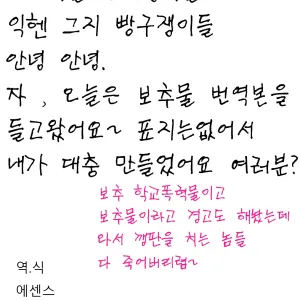 익헨 그지 빵구쟁이들
안녕 안녕.
자 , 오늘은 보추물 번역본을
들고왔어요~ 표지는없어서
내가 대충 만들었어요 여러분?
보추 학교폭력물이고
보추물이라고 경고도 해놨는데
와서 깽판을 치는 놈들
다 죽어버리렴~
역.식
에센스